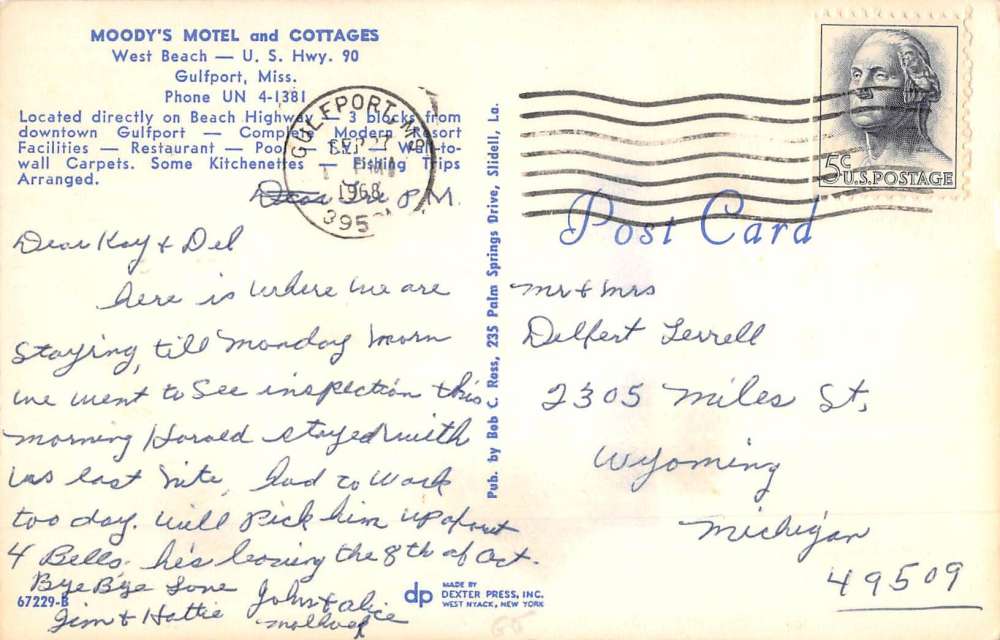 MOODY'S MOTEL and COTTAGES
West Beach — U. S. Hwy. 90
Gulfport, Miss.
Phone UN 4-1381
Located directly on Beach Highway — 3 blocks from
downtown Gulfport — Complete Modern Resort
Facilities — Restaurant — Pool — Wall-to-
wall Carpets. Some Kitchenettes — Fishing Trips
Arranged.
GULFPORT, MS
SEP 27
PM
1968
395
P.M.
Dear Kay & Del
here is where we are
staying, till Monday morn
we went to see inspection this
morning Harold stayed with
us last nite, had to work
too day. will pick him up about
4 Bells. he's leaving the 8th of Oct.
Bye Bye Love
Jim & Hattie
John & Alice
67229-B
Pub. by Bob C. Ross, 235 Palm Springs Drive, Slidell, La.
dp MADE BY
DEXTER PRESS, INC.
WEST NYACK, NEW YORK
5c
U.S. POSTAGE
Post Card
Mr & Mrs
Delbert Terrell
2305 Miles St,
Wyoming
Michigan
49509